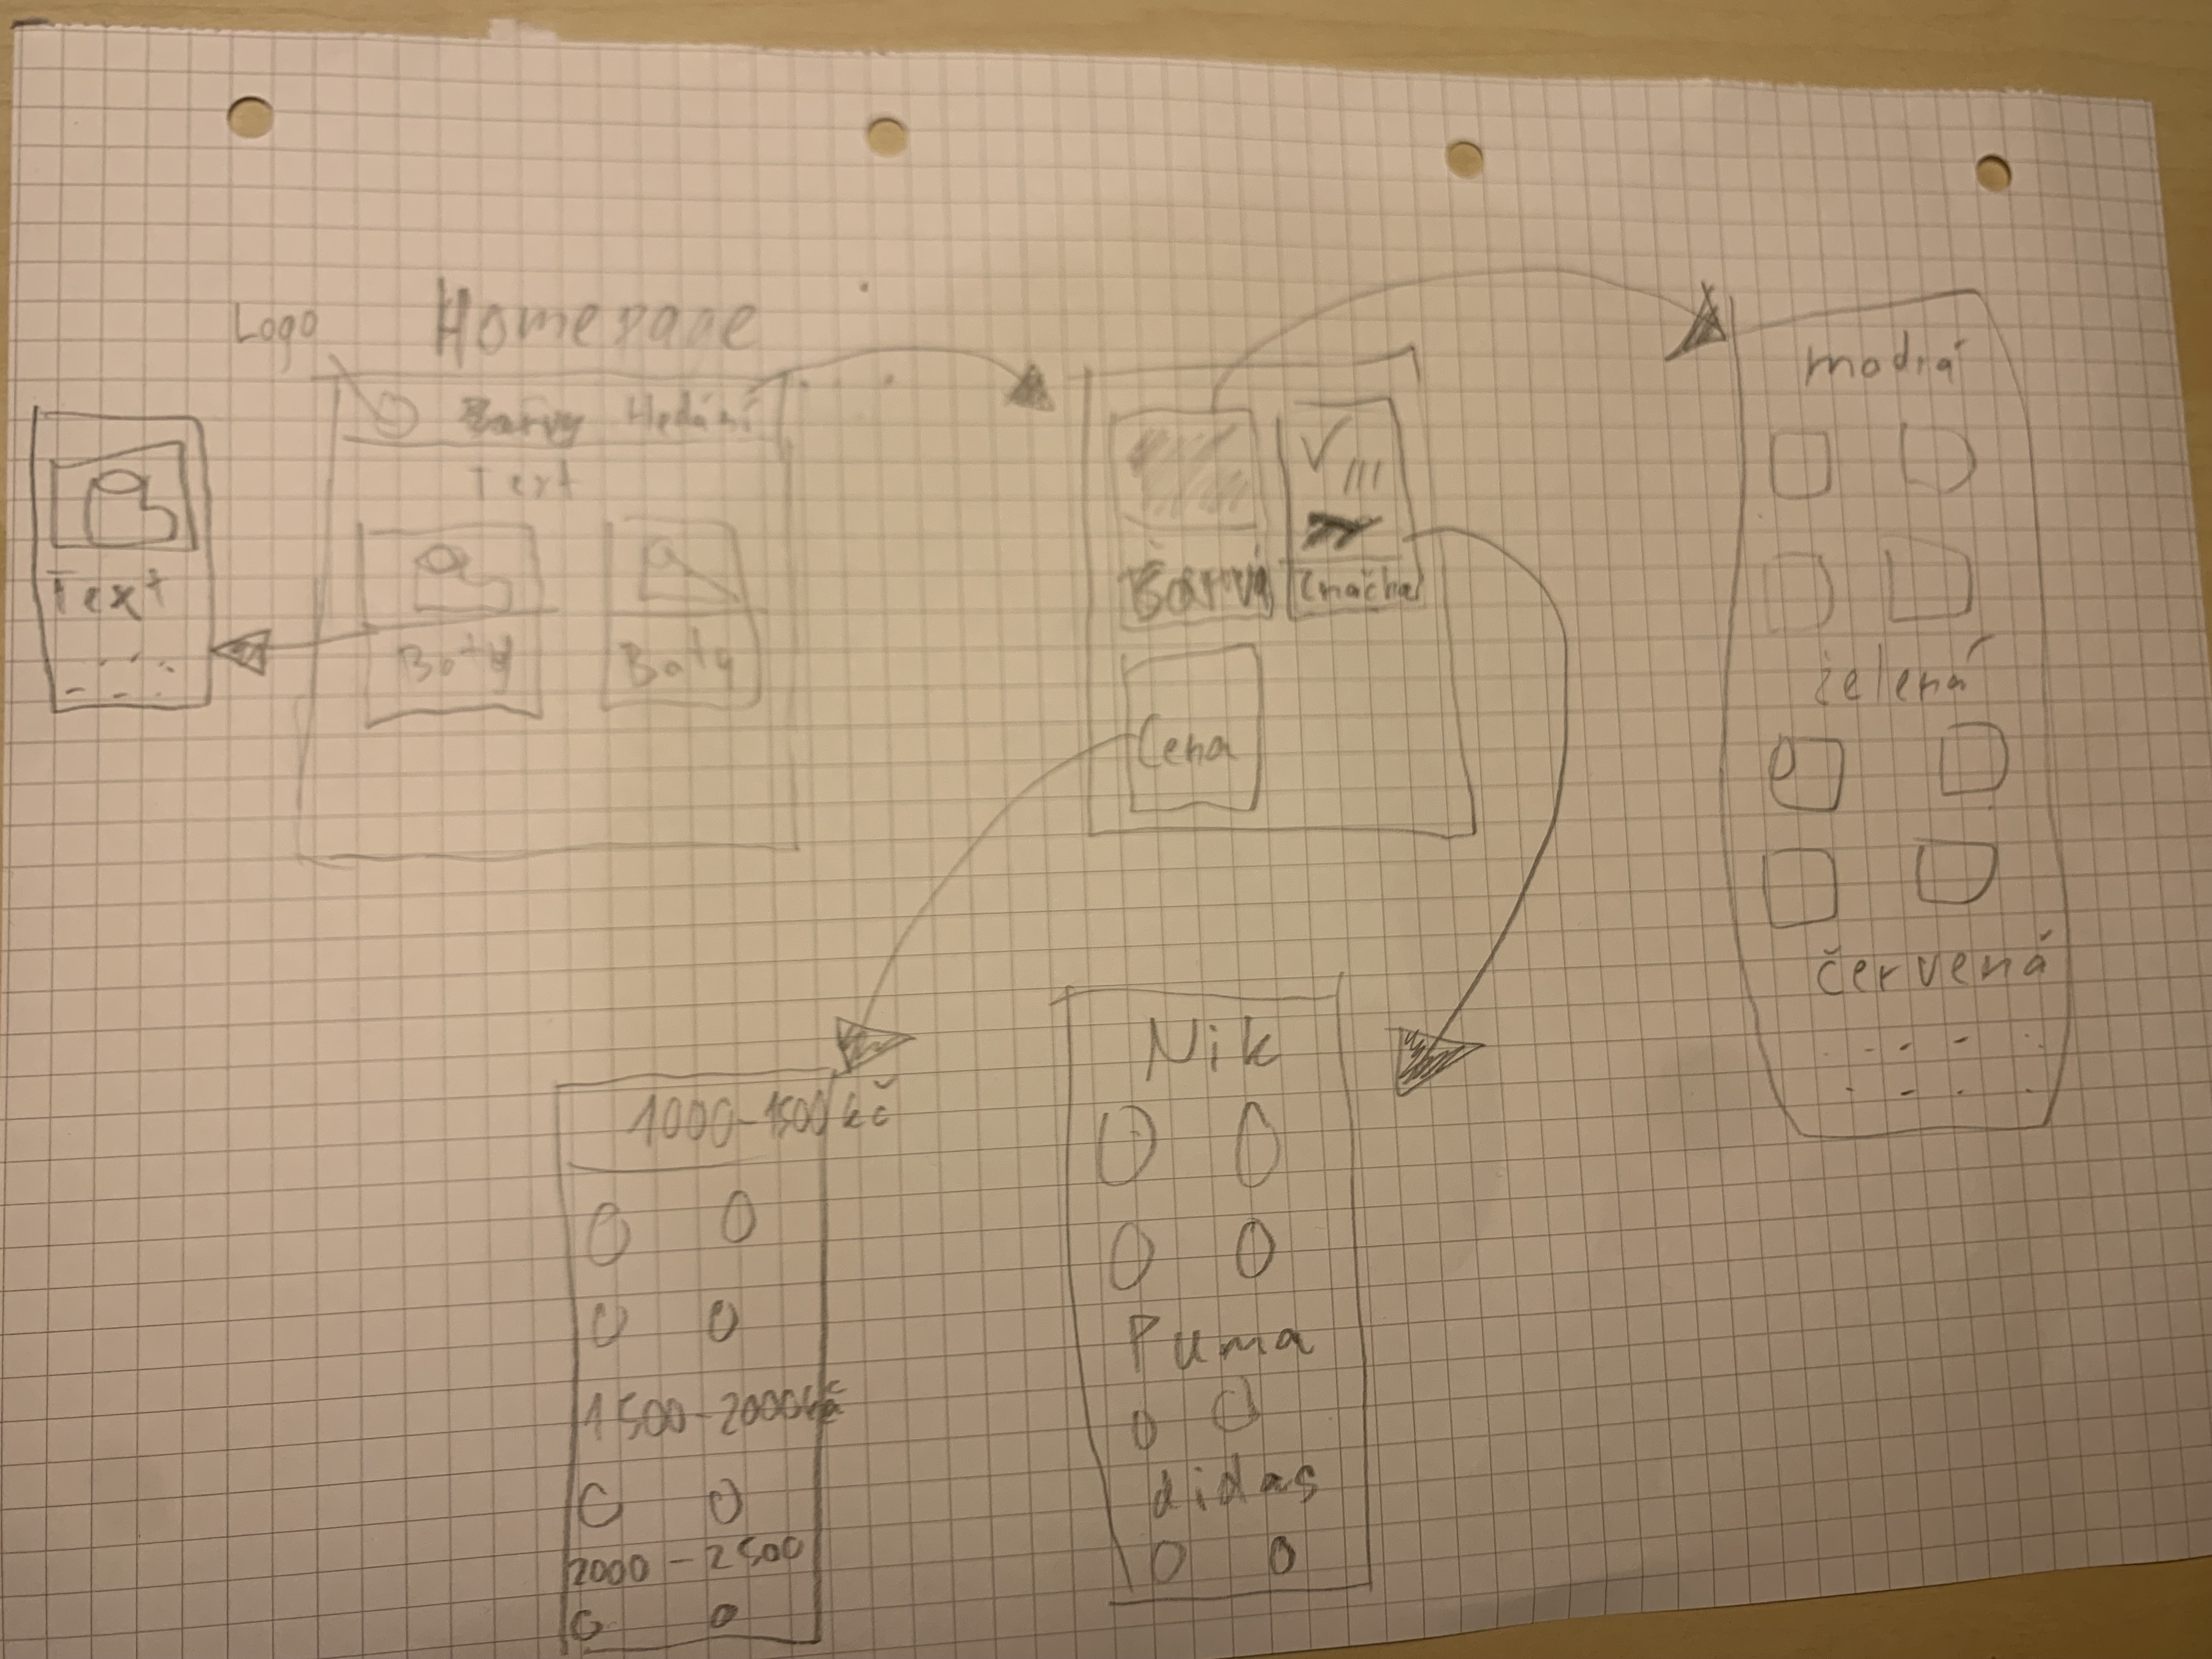 Logo
Homepage
Barvy Hledání
Text
Boty
Boty
Text
Barvi
Značka
Cena
modrá
zelená
červená
1000-1500 kč
1500-2000kč
2000-2500
Nik
Puma
didas